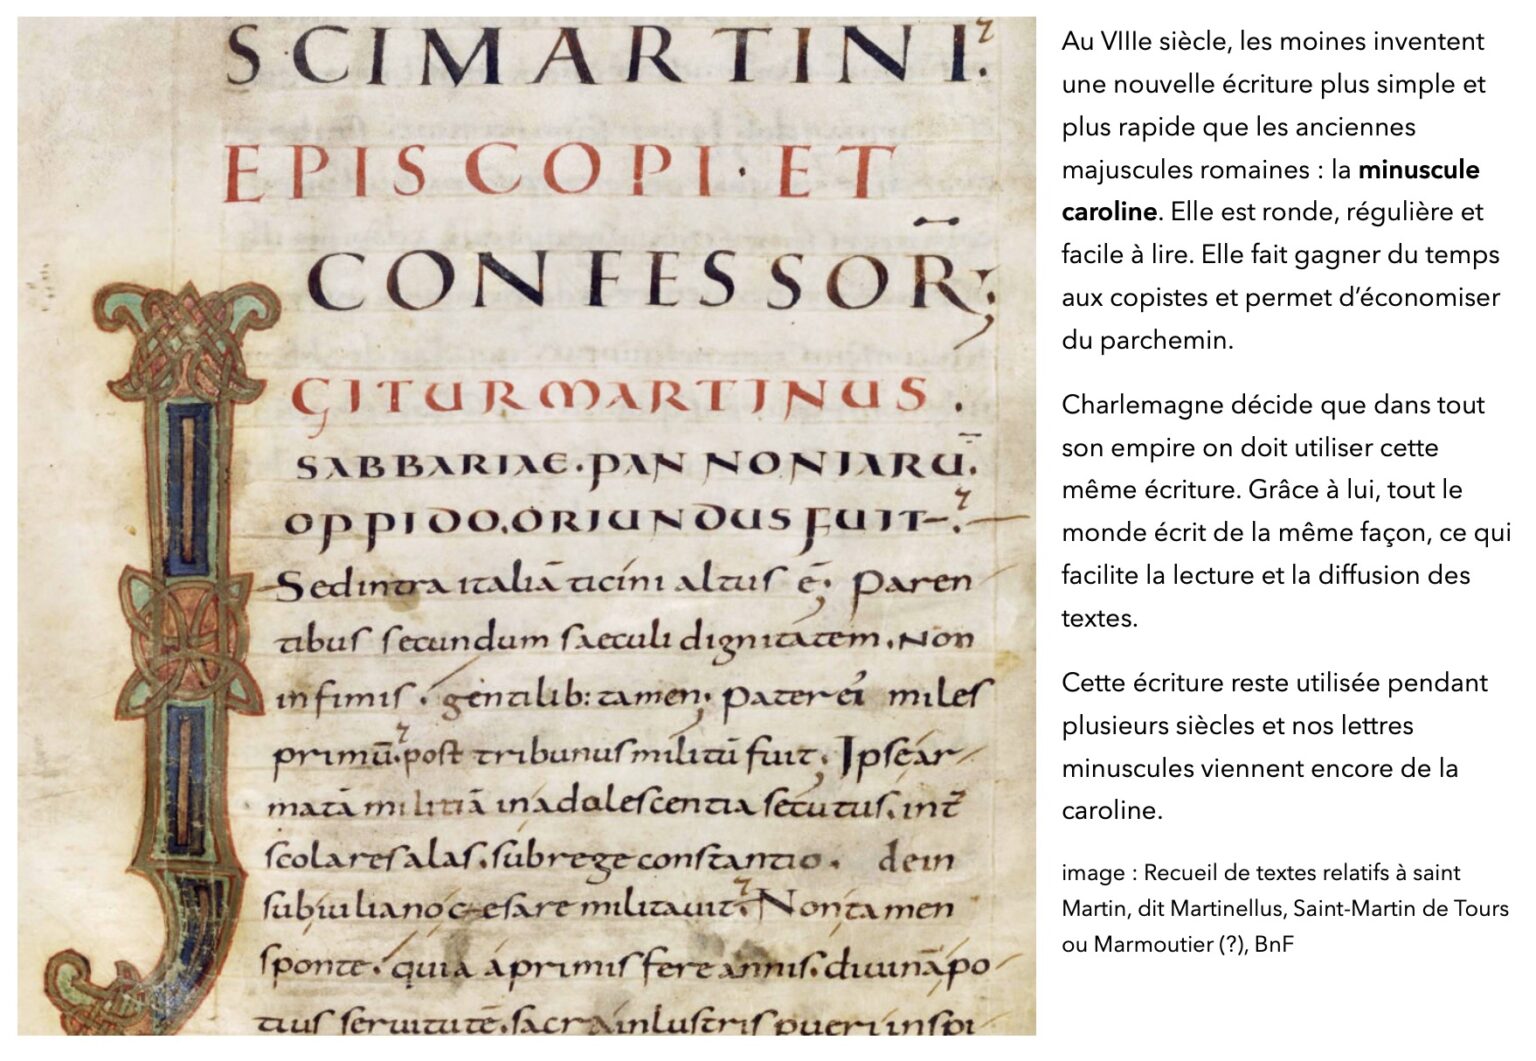 SCIMARTINI.
EPISCOPI·ET
CONFESSOR;
IGITUR MARTINUS.
SABBARIAE·PANNONIARŪ.
OPPIDO.ORIUNDUS FUIT.
Sedintra italiā ticini altus ē; Paren
tibus secundum saeculi dignitatem. Non
infimis. gentilib: tamen; pater ei miles
primū. post tribunus militū fuit. Ipsear
matā militiā inadolescentia secutus. int̄
scolares alas. subrege constantio. dein
subiuliano cesare militauit. Non tamen
sponte. quia aprimis fere annis. diuinā po
tius seruitutē. sacra inlustris pueri inspi
Au VIIIe siècle, les moines inventent
une nouvelle écriture plus simple et
plus rapide que les anciennes
majuscules romaines : la minuscule
caroline. Elle est ronde, régulière et
facile à lire. Elle fait gagner du temps
aux copistes et permet d’économiser
du parchemin.
Charlemagne décide que dans tout
son empire on doit utiliser cette
même écriture. Grâce à lui, tout le
monde écrit de la même façon, ce qui
facilite la lecture et la diffusion des
textes.
Cette écriture reste utilisée pendant
plusieurs siècles et nos lettres
minuscules viennent encore de la
caroline.
image : Recueil de textes relatifs à saint
Martin, dit Martinellus, Saint-Martin de Tours
ou Marmoutier (?), BnF